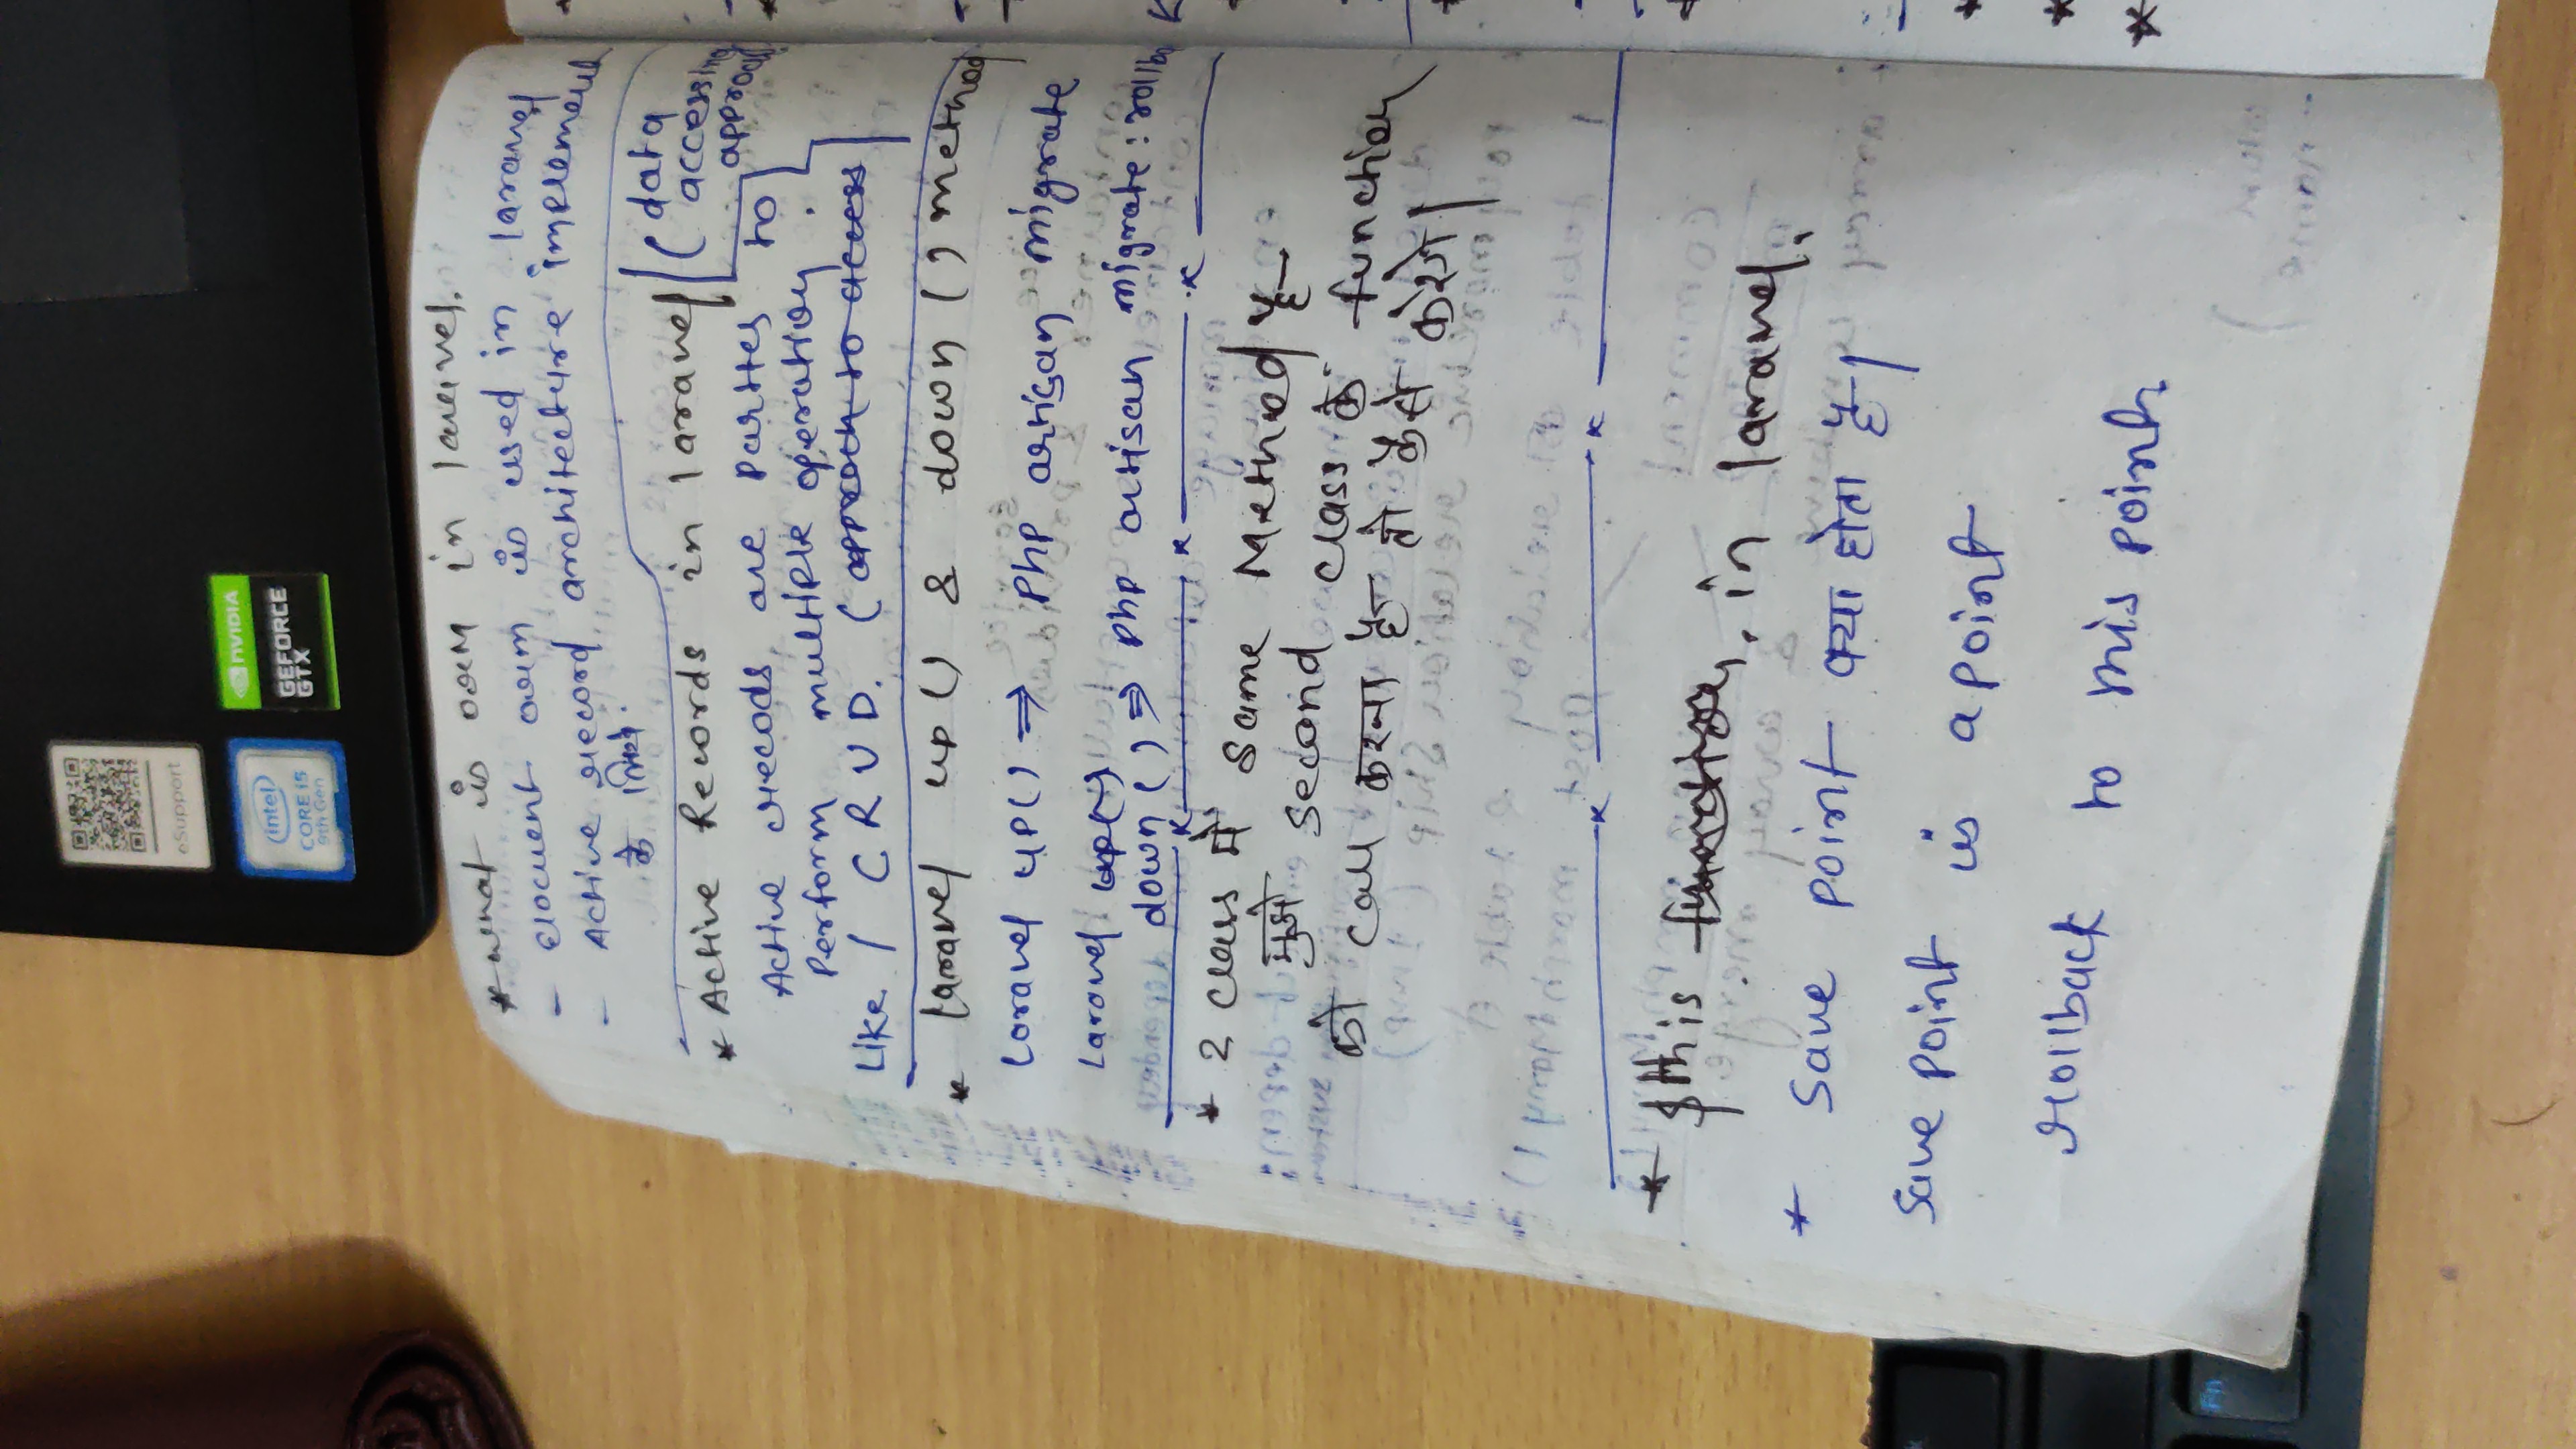 eSupport
intel
CORE i5
9th Gen
NVIDIA
GEFORCE
GTX
* what is orm in laravel.
- elocuent orm is used in laravel
- Active record architecture implement
के लिये.
* Active Records in laravel (data
accessing
approach
Active recods are partses to
perform multiple operation.
Like / CRUD. (approch to access
* laravel up() & down() method
Laravel up() ⇒ php artisan migrate
Laravel up()
down() ⇒ php artisan migrate:rollba
* 2 class में same Method है
मुझे second class के function
को call करना है तो कैसे करेगे|
* $this function, in laravel.
* Save point क्या होता है|
Save point is a point
rollback to this point.
Fn